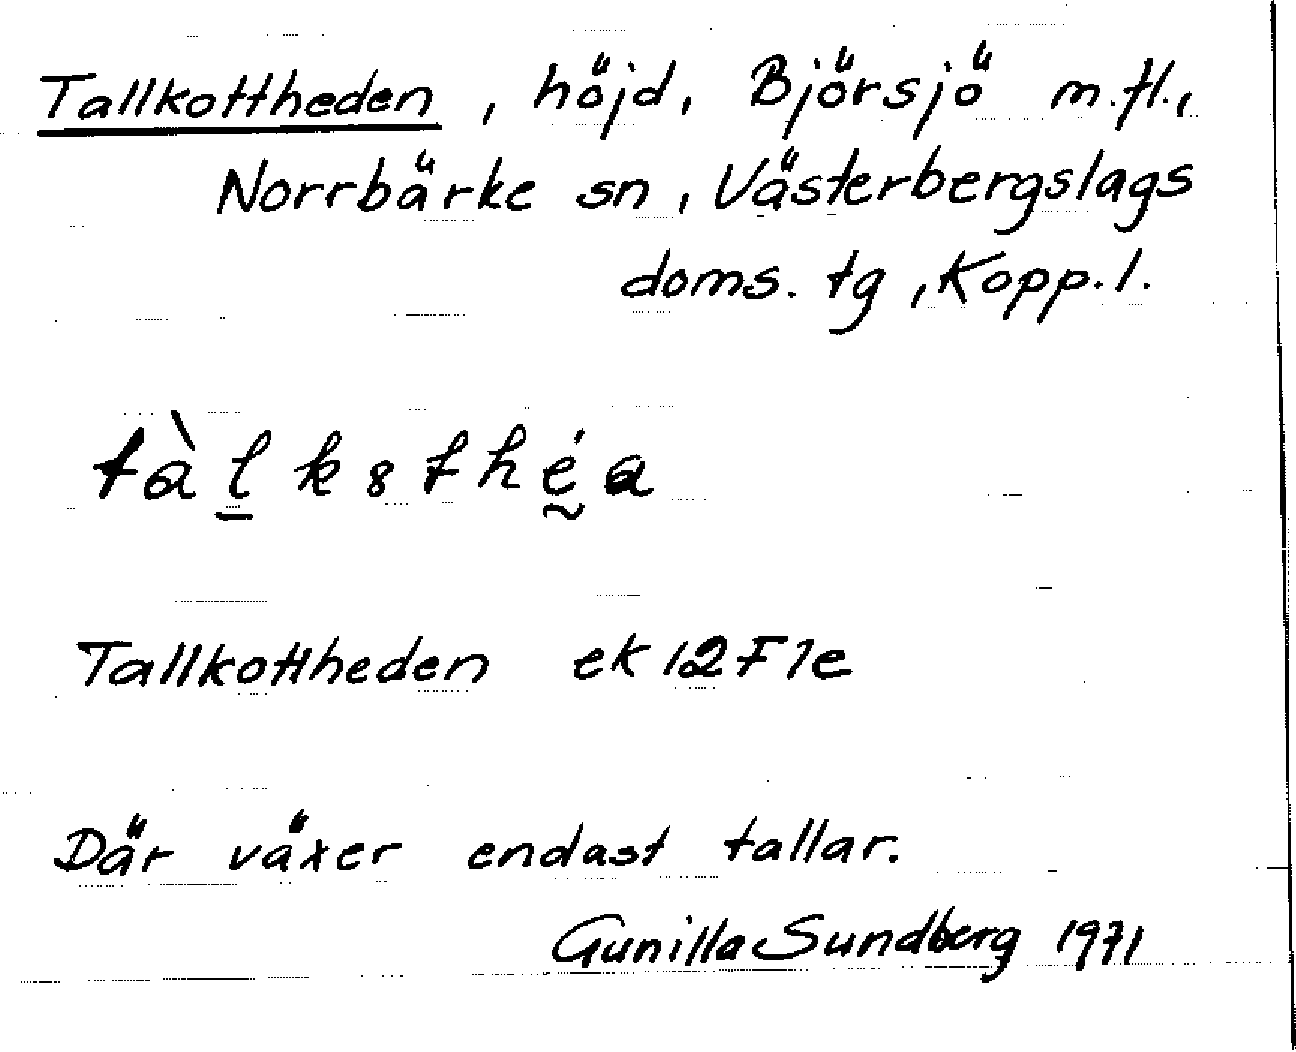 Tallkottheden, höjd, Björsjö m.fl.,
Norrbärke sn, Västerbergslags
doms. tg, Kopp.l.
tàl̲k8théa̰
Tallkottheden ek 12F1e
Där växer endast tallar.
Gunilla Sundberg 1971